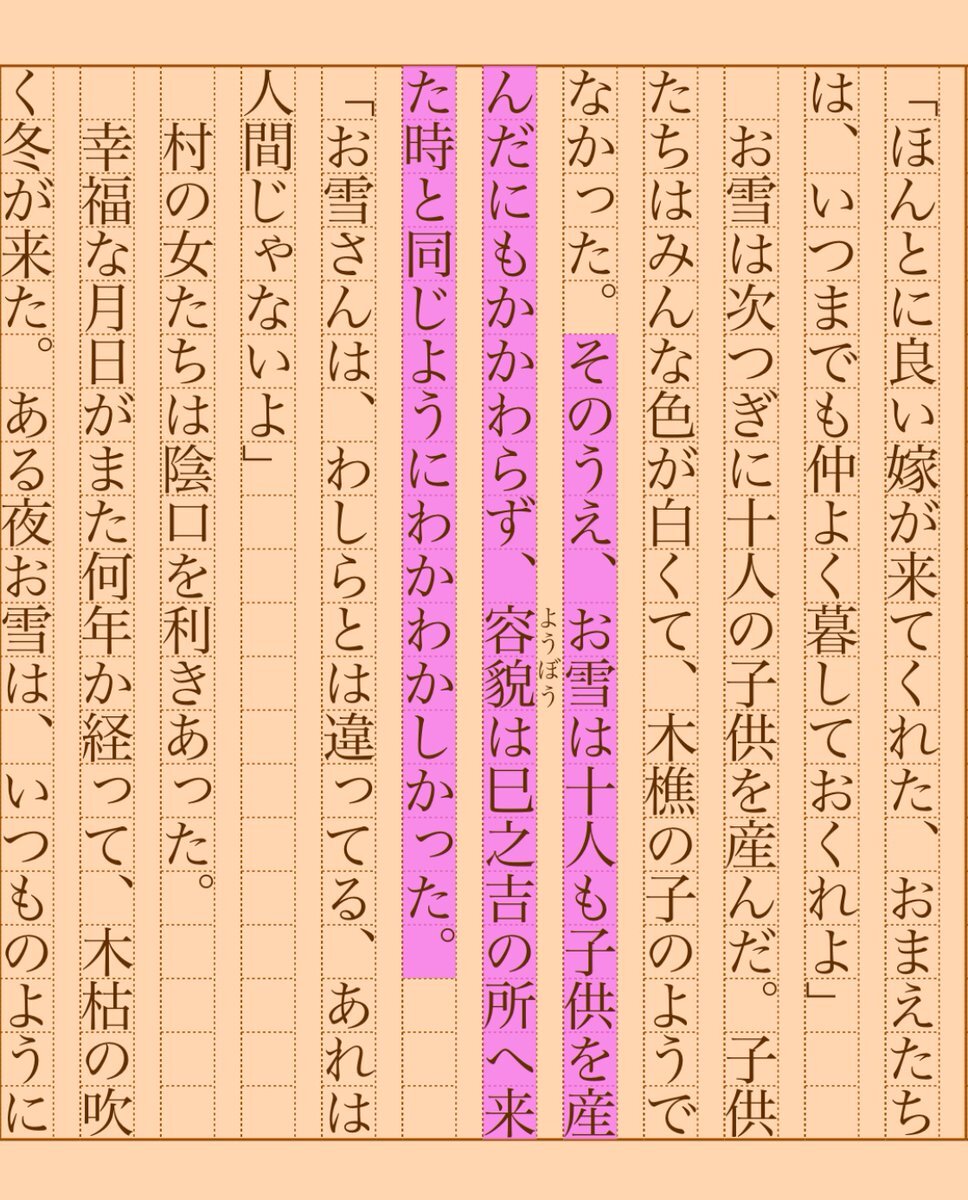 「ほんとに良い嫁が来てくれた、おまえたち
は、いつまでも仲よく暮しておくれよ」
お雪は次つぎに十人の子供を産んだ。子供
たちはみんな色が白くて、木樵の子のようで
なかった。そのうえ、お雪は十人も子供を産
んだにもかかわらず、容貌は巳之吉の所へ来
ようぼう
た時と同じようにわかわかしかった。
「お雪さんは、わしらとは違ってる、あれは
人間じゃないよ」
村の女たちは陰口を利きあった。
幸福な月日がまた何年か経って、木枯の吹
く冬が来た。ある夜お雪は、いつものように